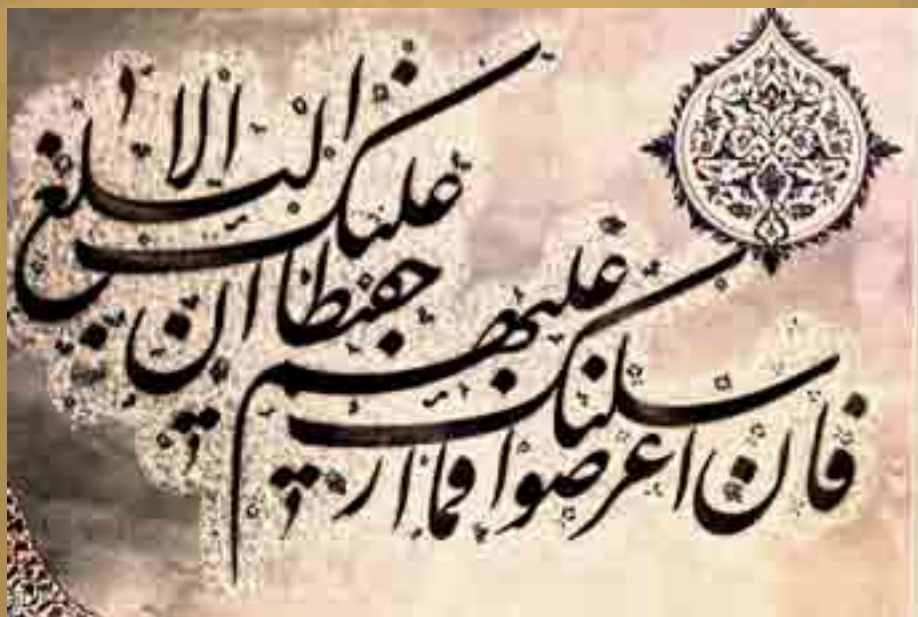 فان اعرضوا فما ارسلنک علیهم
حفیظا ان علیک الا البلغ